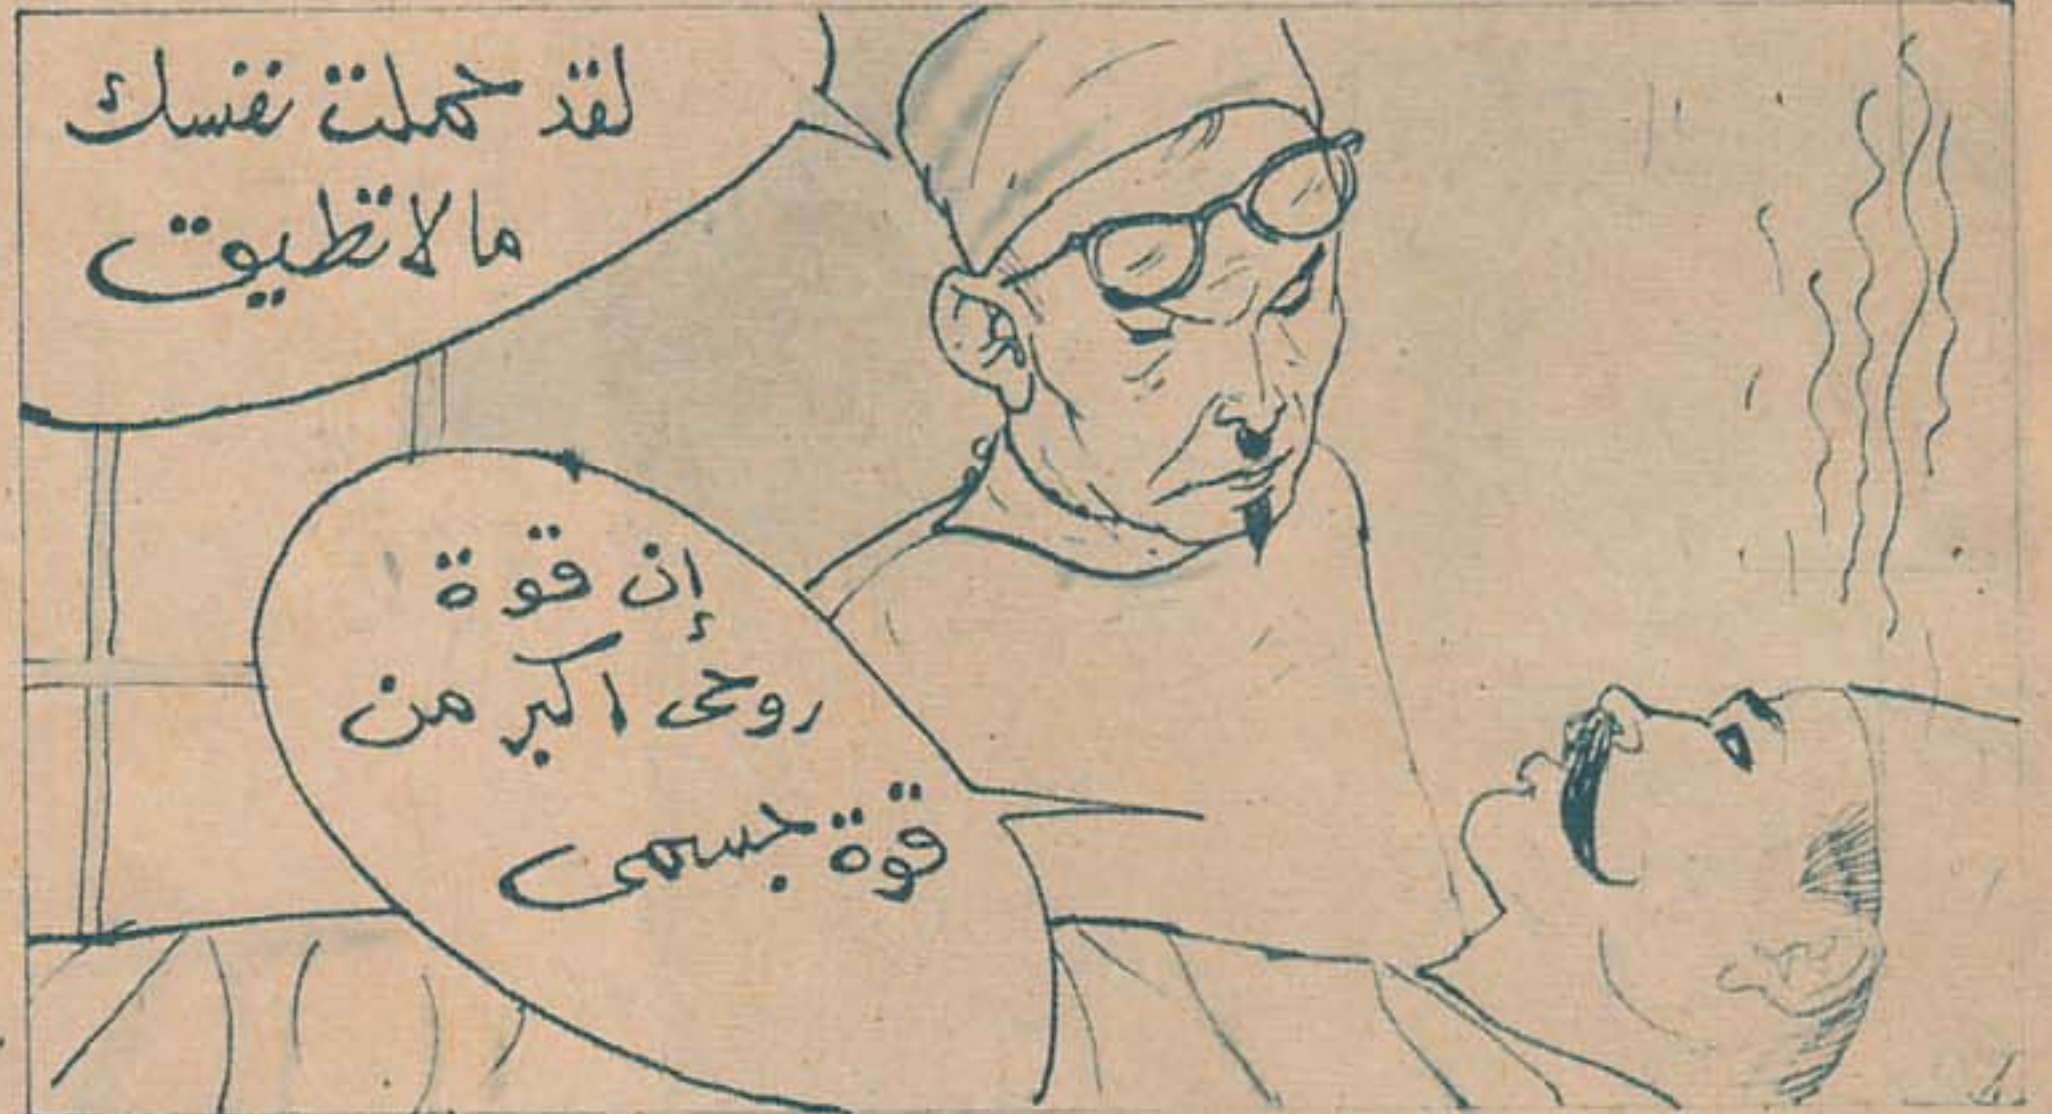 لقد حملت نفسك
ما لا تطيق
إن قوة
روحى اكبر من
قوة جسمى